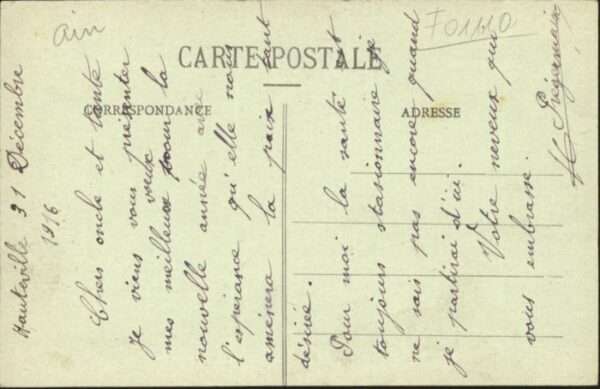 Ain
F01110
CARTE POSTALE
CORRESPONDANCE
ADRESSE
Hauteville 31 Décembre
1916
Chers oncle et tante
je viens vous présenter
mes meilleurs vœux pour la
nouvelle année avec
l'espérance qu'elle nous
amènera la paix tant
désirée.
Pour moi la santé est
toujours stasionnaire je
ne sais pas encore quand
je partirai d'ici.
Votre neveux qui
vous embrasse.